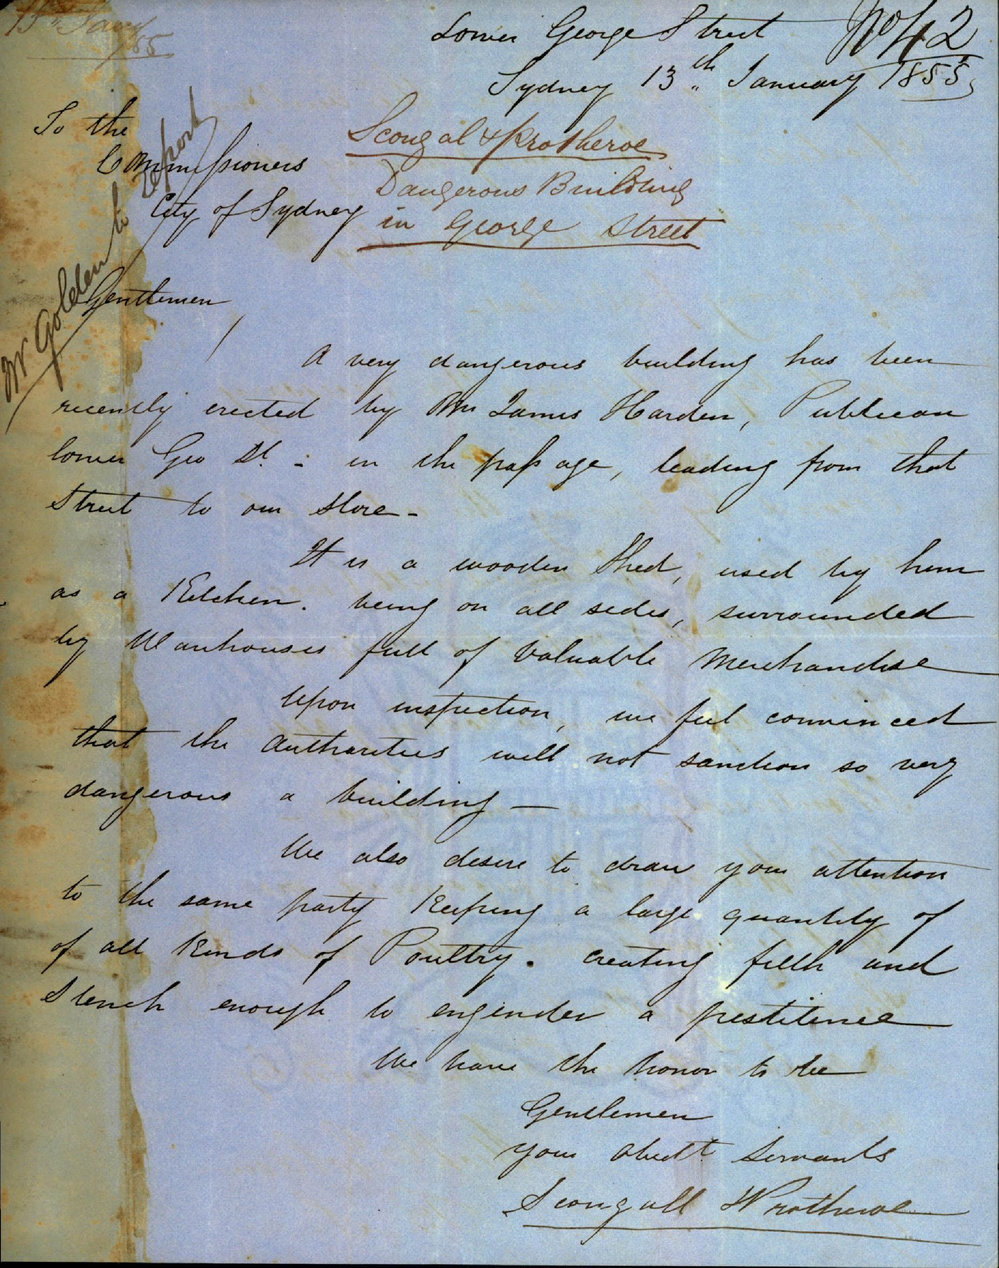 15th Jany
/55
No 42
Lower George Street
Sydney 13th January 1855
To the
Commissioners
City of Sydney
Scougal & Protheroe
Dangerous Building
in George Street
Mr Golden to report
Gentlemen,
A very dangerous building has been
recently erected by Mr James Harden, Publican
lower Geo St. - in the passage, leading from that
Street to our store -
It is a wooden Shed, used by him
as a Kitchen. being on all sides, surrounded
by Warehouses full of valuable Merchandise
Upon inspection, we feel convinced
that the Authorities will not sanction so very
dangerous a building —
We also desire to draw your attention
to the same party Keeping a large quantity of
of all Kinds of Poultry. creating filth and
Stench enough to engender a pestilence
We have the honor to be
Gentlemen
your obedt Servants
Scougall & Protheroe